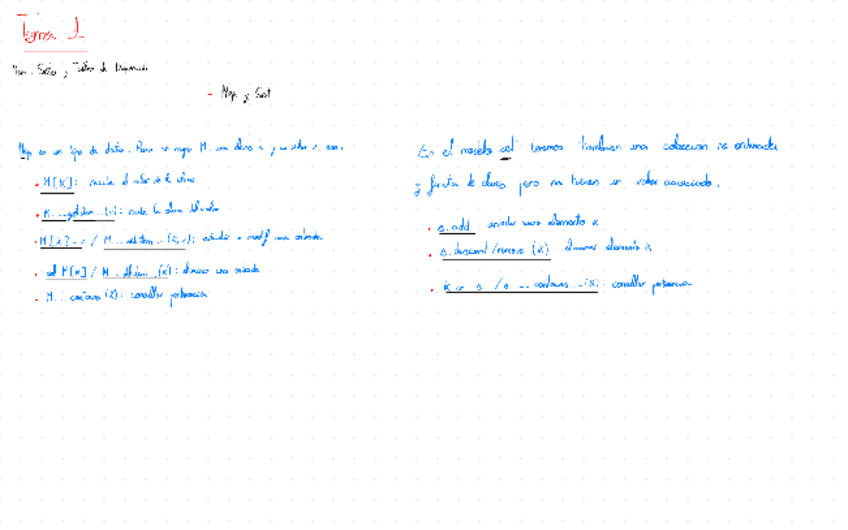 Tema 1
Map, Sets y Tablas de Dispersión
- Map y Set
Map es un tipo de dato. Para un mapa M, una clave k y un valor v, son:
• M[k]: recibe el valor de la clave
• M.__getitem__(k): recibe la clave
• M[k] = v / M.__setitem__(k,v): añadir o modif una entrada
• del M[k] / M.__delitem__(k): eliminar una entrada
• M.__contains__(k): consultar pertenencia
En el modelo set tenemos también una colección no ordenada
y finita de claves pero no tienen un valor asociado.
• s.add añadir elemento k
• s.discard/remove (k) eliminar elemento k
• k in s / s.__contains__(k): consultar pertenencia